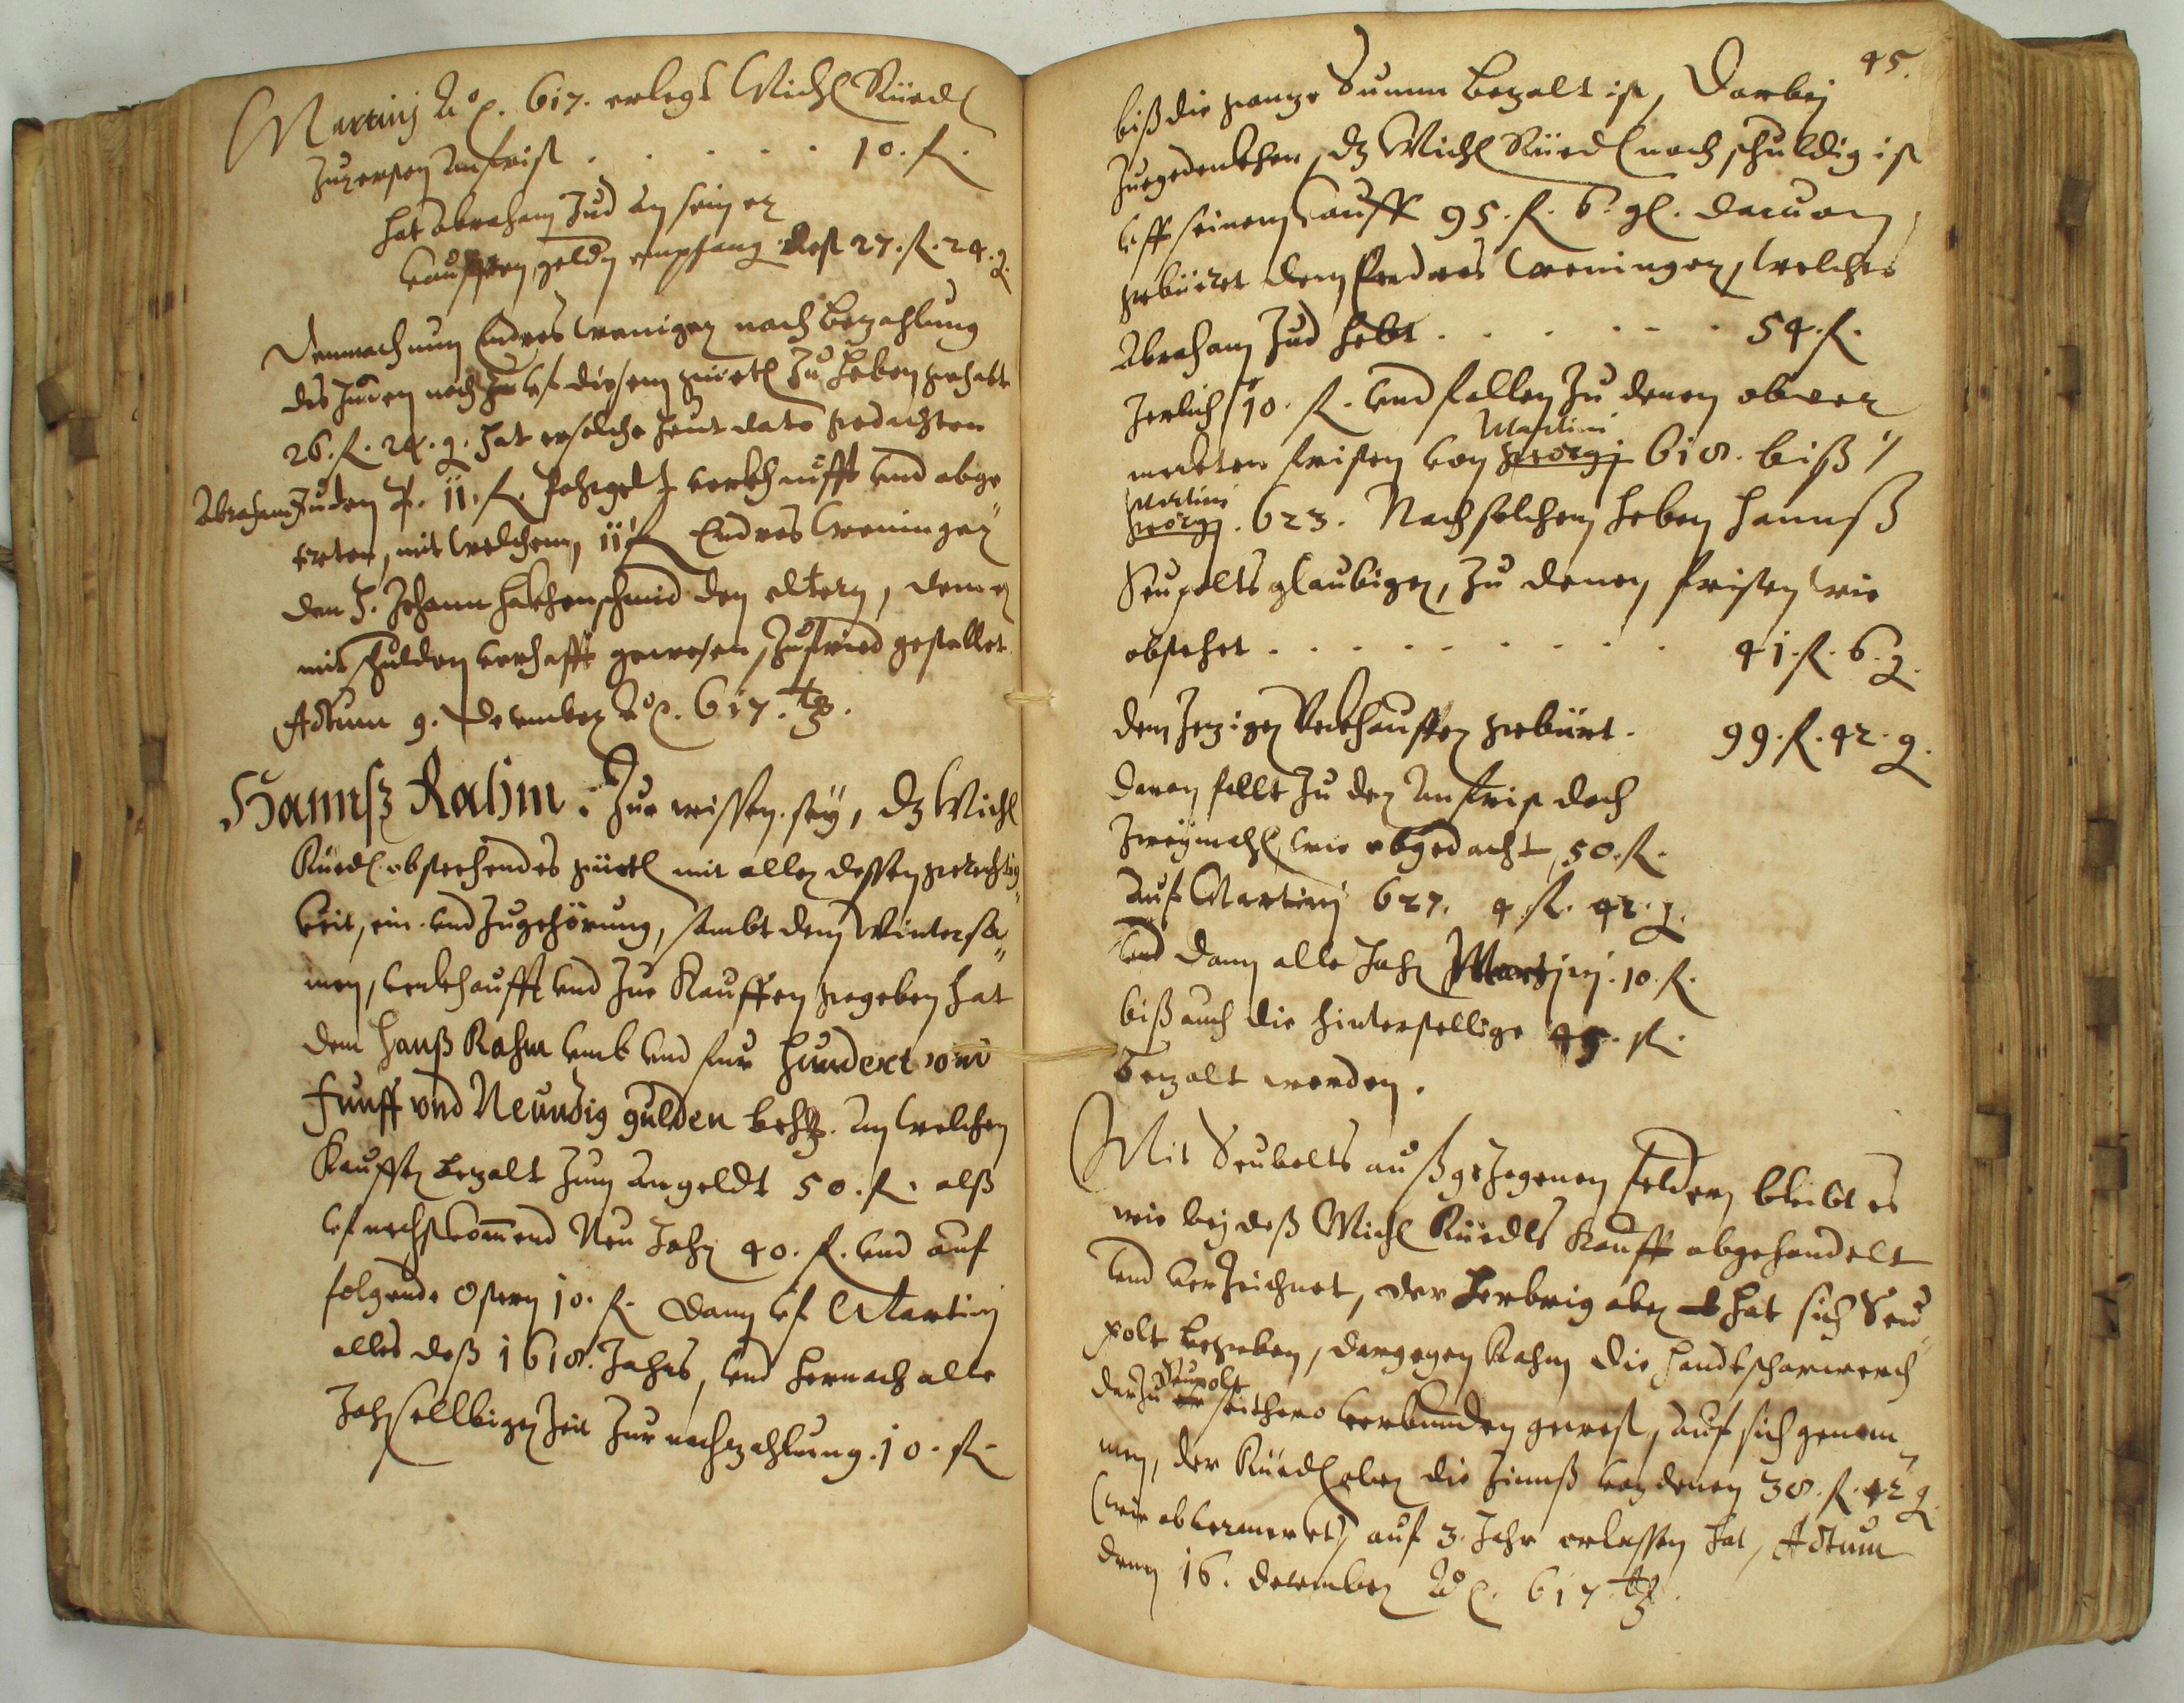 Martinj Aõ. 617. erlegt Michl Rüedl
zu ersten Anfrist . . . . . . 10. fl.
hat Abraham Jud an seinen
kaufften geldn empfang. Rest 27. fl. 24. ₰.
Demnach nun Endres Weninger nach bezahlung
des Juden noch uf diesem güetl zu heben gehabt
26. fl. 24. ₰. hat er solche heut dato gedachten
Abraham Juden p. 11. fl. verkaufft und abge
tretten, mit welchem 11 fl Endres Weninger
den H. Johann den eltern, deme er
mit schulden verhafft gewesen, zufried gestellet
Actum 9. December Aõ. 617.
Hannß Rahm. Zue wissen sey, dz Michl
Rüedl obstehendes güetl mit aller dessen gerechtig
keit, ein- und Zugehörung, sambt dem Wintersa
men, verkaufft und zue Kauffen gegeben hat
dem Hanß Rahm umb und fur Hundert und
Funff und Neunzig gulden . An welchen
Kauffer bezalt zum Angeldt 50. fl. alß
uf nechstkommend Neu Jahr 40. fl. und auf
folgende Ostern 10. fl. Dann uf Martinj
alles deß 1618. Jahrs, und hernach alle
Jahr selbiger Zeit zur nachzahlung. 10. fl.
45.
biß die ganze Summ bezalt ist, Darbej
zuegedenkhen, dz Michl Rüedl noch schuldig ist
uff seinem Kauff 95. fl. 6. gl. Daruon
gebüeret dem Endres Weninger, welches
Abraham Jud hebt . . . . . . 54. fl.
Jerlich 10. fl. und fallen zu denen obver
Martini
melten fristen von Georgj 618. biß
Martini
Georgj. 623. Nach solchem heben Hannß
Seupolts glaubiger, zu denen fristen wie
obstehet . . . . . . . . . 41. fl. 6. ₰.
dem Jezigen Verkhauffer gebürt. 99. fl. 42. ₰.
Daran fellt zu der Anfrist doch
zweymahl, wie obgedacht, 50. fl.
Auf Martinj 627. 4. fl. 42. ₰.
und dann alle Jahr Martinj. 10. fl.
biß auch die hinterstellige 45. fl.
bezalt werden.
Mit Seubolts außgezogenen feldern bleibt es
wie bej deß Michl Rüedls Kauff abgehandelt
und verzeichnet, der Herbrig aber hat sich Seu
polt begeben, dargegen Rahm die handtscharwerch
Seupolt
darzu er seithero verbunden gewest, auf sich genom
men, der Rüedl aber die Zinnß von denen 38. fl. 42 ₰.
(wie obvermeret) auf 3. Jahr erlassen hat, Actum
denn 16. December Aõ. 617